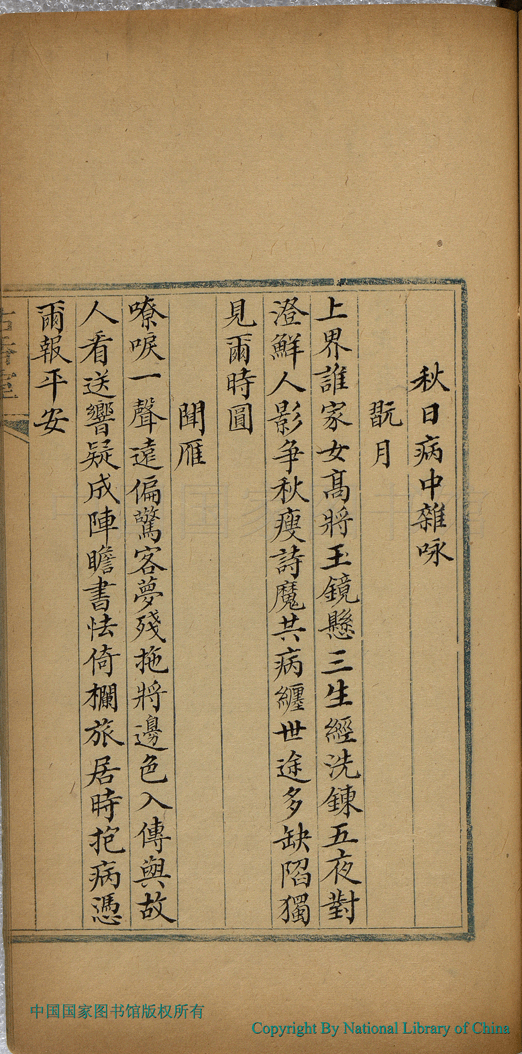 秋日病中雜咏
翫月
上界誰家女高將玉鏡懸三生經洗鍊五夜對
澄鮮人影争秋瘦詩魔共病纏世途多缺陷獨
見爾時圓
聞雁
嘹唳一聲遠偏驚客夢殘拖將邊色入傳與故
人看送響疑成陣瞻書怯倚欄旅居時抱病憑
爾報平安
中国国家图书馆版权所有
Copyright By National Library of China